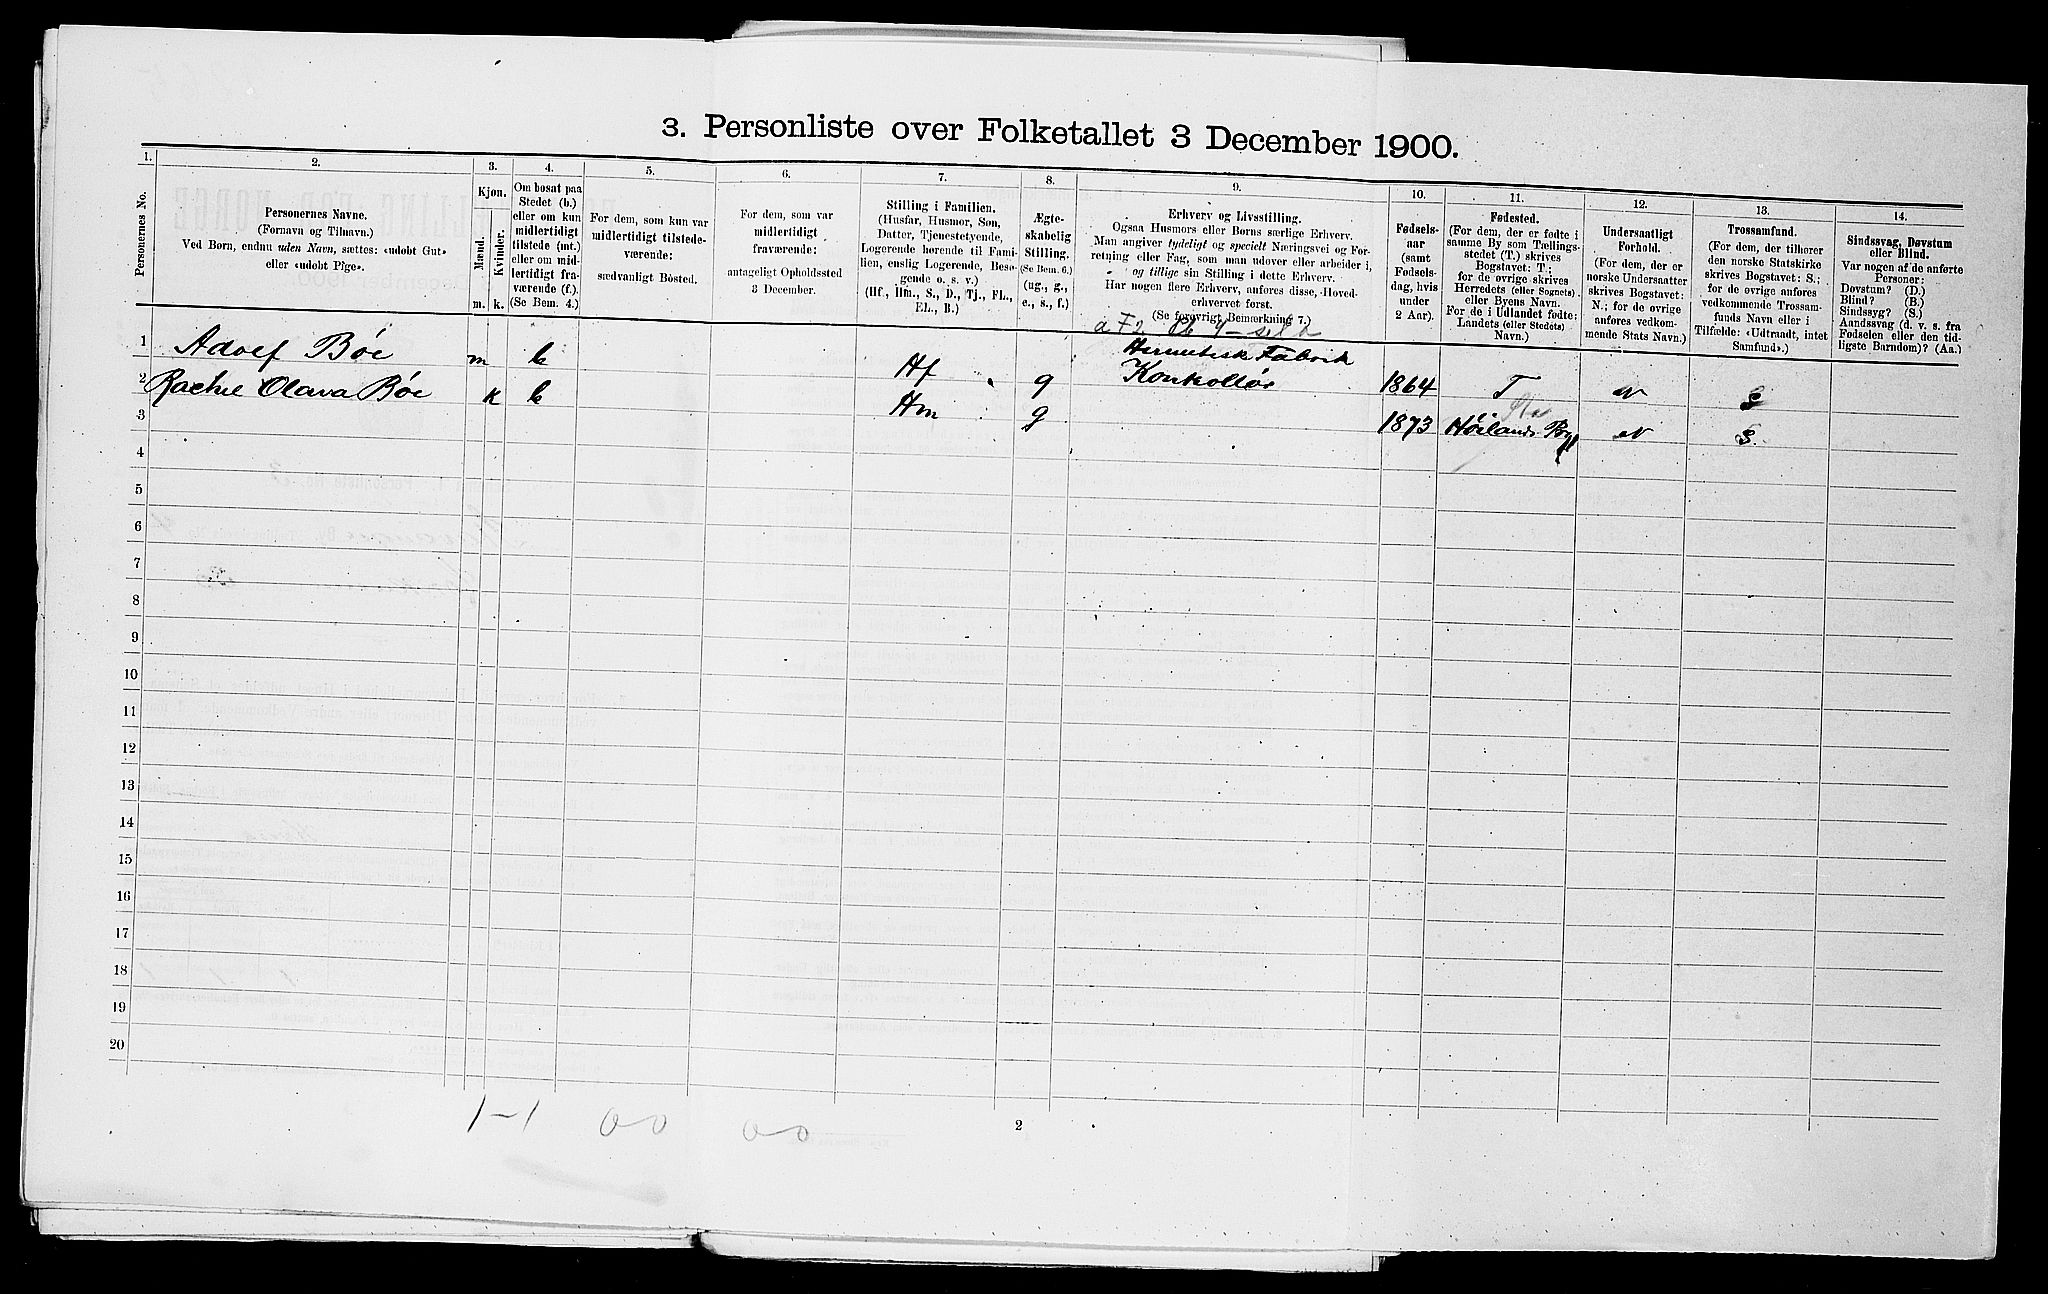 3. Personliste over Folketallet 3 December 1900.
1. 2. 3. 4. 5. 6. 7. 8. 9. 10. 11. 12. 13. 14.
Personernes No.
Personernes Navne.
(Fornavn og Tilnavn.)
Ved Børn, endnu uden Navn, sættes: «udøbt Gut»
eller «udøbt Pige».
Kjøn.
Mænd.
Kvinder.
m. k.
Om bosat paa
Stedet (b.)
eller om kun
midlertidigt
tilstede (mt.)
eller om mid-
lertidigt fra-
værende (f.).
(Se Bem. 4.)
For dem, som kun var
midlertidigt tilstede-
værende:
sædvanligt Bosted.
For dem, som var
midlertidigt
fraværende:
antageligt Opholdssted
3 December.
Stilling i Familien.
(Husfar, Husmor, Søn,
Datter, Tjenestetyende,
Logerende hørende til Fami-
lien, enslig Logerende, Besø-
gende o. s. v.)
(Hf., Hm., S., D., Tj., FL.,
EL., B.)
Ægte-
skabelig
Stilling.
(Se Bem. 6.)
(ug., g.,
e., s., f.)
Erhverv og Livsstilling.
Ogsaa Husmors eller Børns særlige Erhverv.
Man angiver tydeligt og specielt Næringsvei og For-
retning eller Fag, som man udøver eller arbeider i,
og tillige sin Stilling i dette Erhverv.
Har nogen flere Erhverv, anføres disse, Hoved-
erhvervet først.
(Se forøvrigt Bemærkning 7.)
Fødsels-
aar
(samt
Fødsels-
dag, hvis
under
2 Aar).
Fødested.
(For dem, der er fødte i
samme By som Tællings-
stedet (T.) skrives
Bogstavet: T;
for de øvrige skrives
Herredets (eller Sognets)
eller Byens Navn.
For de i Udlandet fødte:
Landets (eller Stedets)
Navn.)
Undersaatligt
Forhold.
(For dem, der er
norske Undersaatter
skrives Bogstavet:
N.; for de øvrige
anføres vedkom-
mende Stats Navn.)
Trossamfund.
(For dem, der tilhører
den norske Statskirke
skrives Bogstavet: S.;
for de øvrige anføres
vedkommende Trossam-
funds Navn eller i
Tilfælde: «Udtraadt, intet
Samfund».)
Sindssvag, Døvstum
eller Blind.
Var nogen af de anførte
Personer:
Døvstum? (D.)
Blind? (B.)
Sindssyg? (S.)
Aandssvag (d. v. s. fra
Fødselen eller den tid-
ligste Barndom)? (Aa.)
1 Adolf Bøe m b Hf g Hermetisk Fabrik
Kontrollør 1864 T N S
2 Rachel Olava Bøe k b Hm g 1873 Høilands N S.
3
4
5
6
7
8
9
10
11
12
13
14
15
16
17
18
19
20
1-1 00 00
2